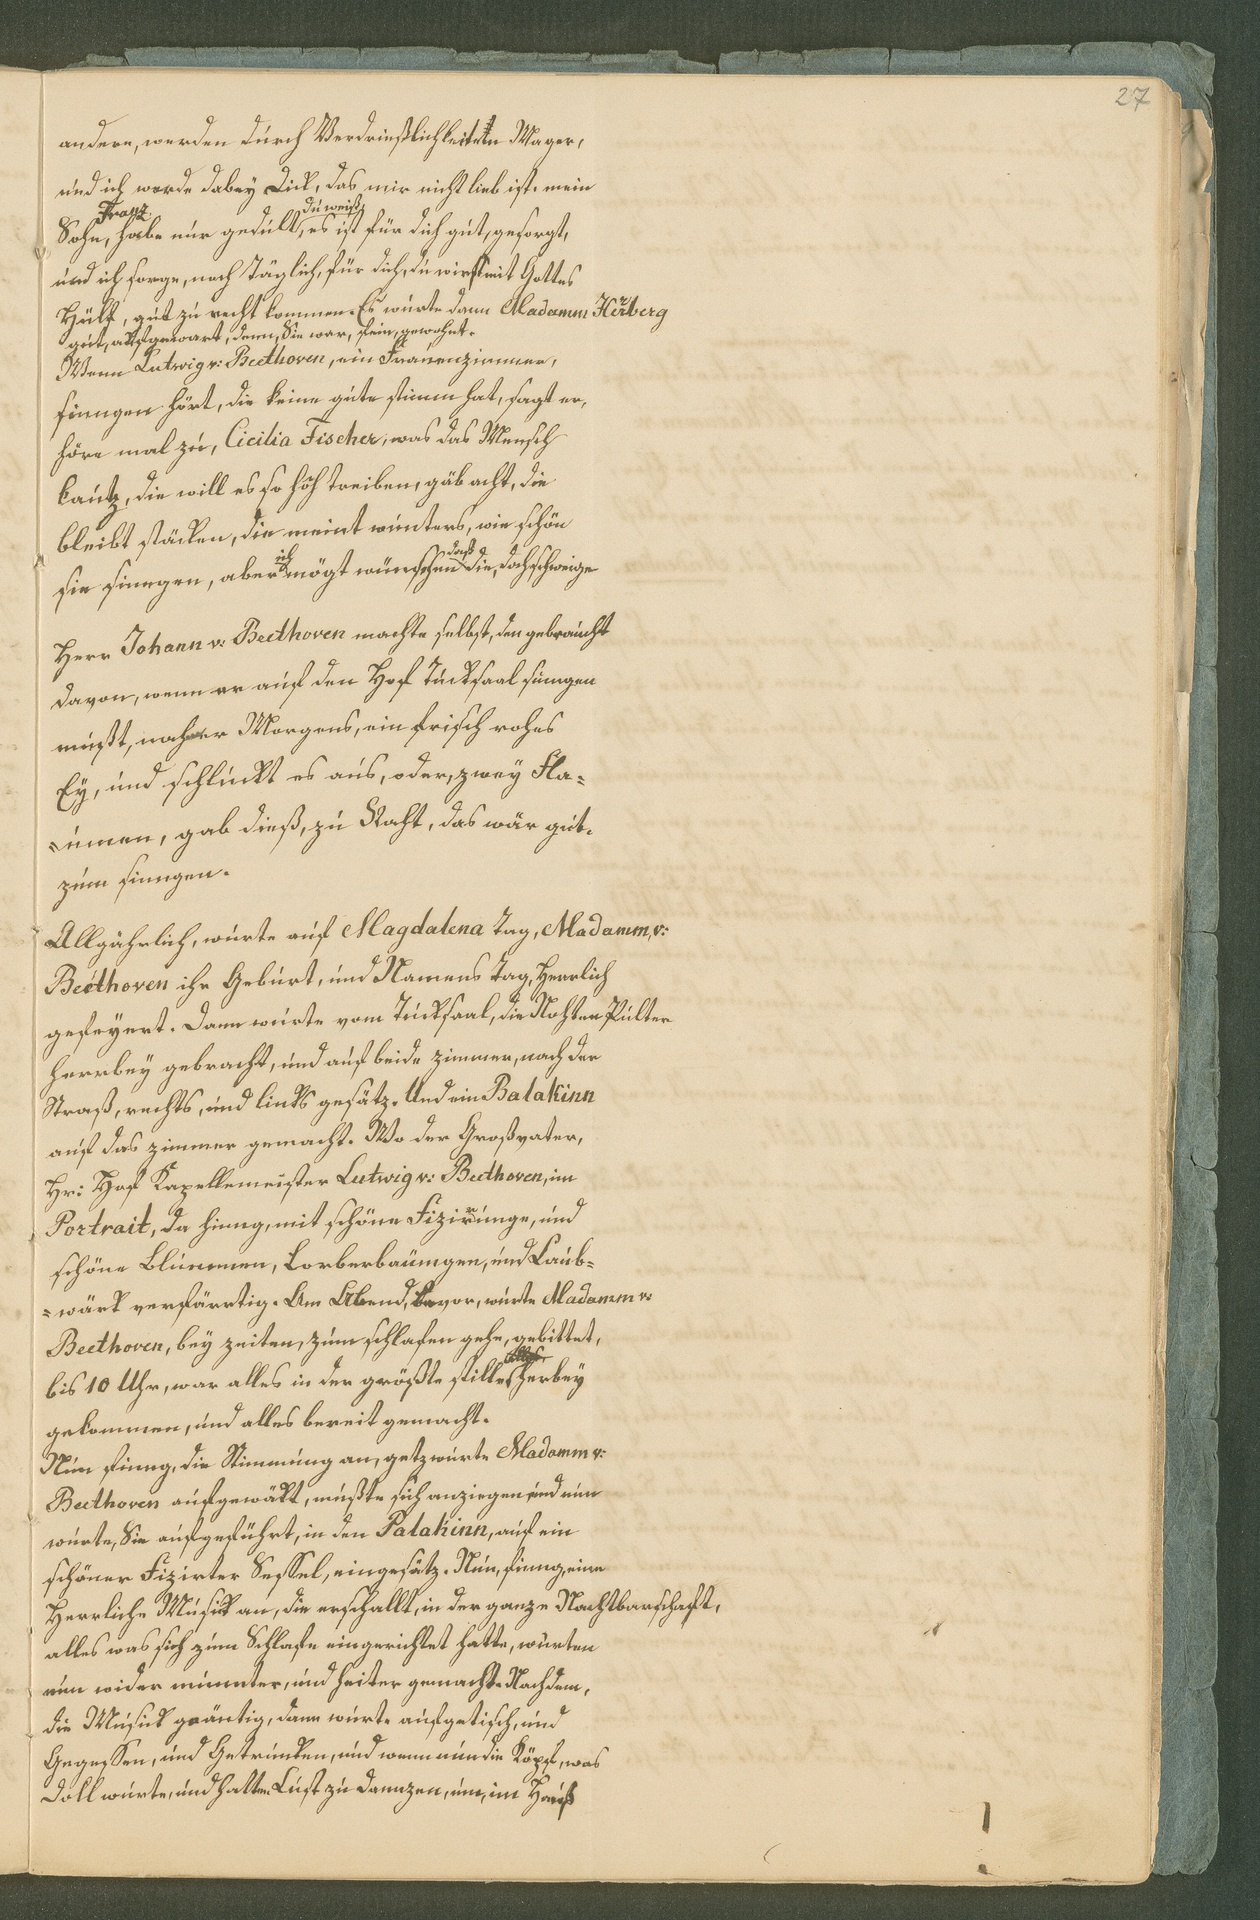 27
andere, werden durch Verdrießlichkeiten Mager,
und ich werde dabey Dick, das mir nicht lieb ist. mein
Franz du weiß,
Sohn, habe nur gedult, es ist für dich gut, gesorgt,
und ich sorge, noch Täglich, für dich, du wirst mit Gottes
Hülf, gut zu recht kommen. Es wurte dann Madamm Herzberg
gut, aufgewart, denn, Sie war, fein, gewohnt.
Wenn Lutwig v: Beethoven, ein Frauenzimmer,
singen hört, die keine gute stimm hat, sagt er,
höre mal zu, Cicilia Fischer, was das Mensch
kautz, die will es so hoh treiben, gäb acht, die
bleibt stäcken, die meint wunters, wie schön
ich daß
sie singen, aber mögt wünschen die, doch schweige
Herr Johann v: Beethoven machte selbst, den gebraucht
davon, wenn er auf den Hof Tucksaal singen
mußt, nahm er Morgens, ein frisch rohes
Ey, und schluckt es aus, oder, zwey Fla-
-umen, gab dieß, zu Raht, das wär gut.
zum singen.
Allgährlich, wurte auf Magdalena Tag, Madamm, v:
Beethoven ihr Geburt, und Namens Tag, Herrlich
gefeyert. Dann wurte vom Tucksaal, die Nohten Pulter
herrbey gebracht, und auf beide zimmer, nach der
Straß, rechts, und links gesätz. Und ein Balakinn
auf das zimmer gemacht. Wo der Großvater,
Hr: Hof Kapellemeister Lutwig v: Beethoven, im
Portrait, da hinng, mit schöne Fizirunge, und
schöne Blummen, Lorberbäumgen, und Laub-
=wärk verfärrtig. Am Abend, bevor, wurte Madamm v:
Beethoven, bey zeiten, zum schlafen gehe, gebittet,
bis 10 Uhr, war alles in der größte stille herbey
gekommen, und alles bereit gemacht.
Nun finng, die Stimmung an, getz wurte Madamm v:
Beethoven aufgewäkt, mußte sich anziegen und nun
wurte, Sie aufgeführt, in den Palakinn, auf ein
schöner Fizirter Sessel, eingesätz. Nun, finng, eine
Herrliche Musick an, die erschallt, in der ganze Nachtbarschaft,
alles was sich zum Schlafe eingerichtet hatte, wurten
nun wider munnter, und heiter gemacht. Nachdem,
die Musick geäntig, dann wurte aufgetisch, und
Gegessen, und Getrunken, und wenn nun die Köpf, was
doll wurte, und hatten Lust zu dannzen, um, im Hauß